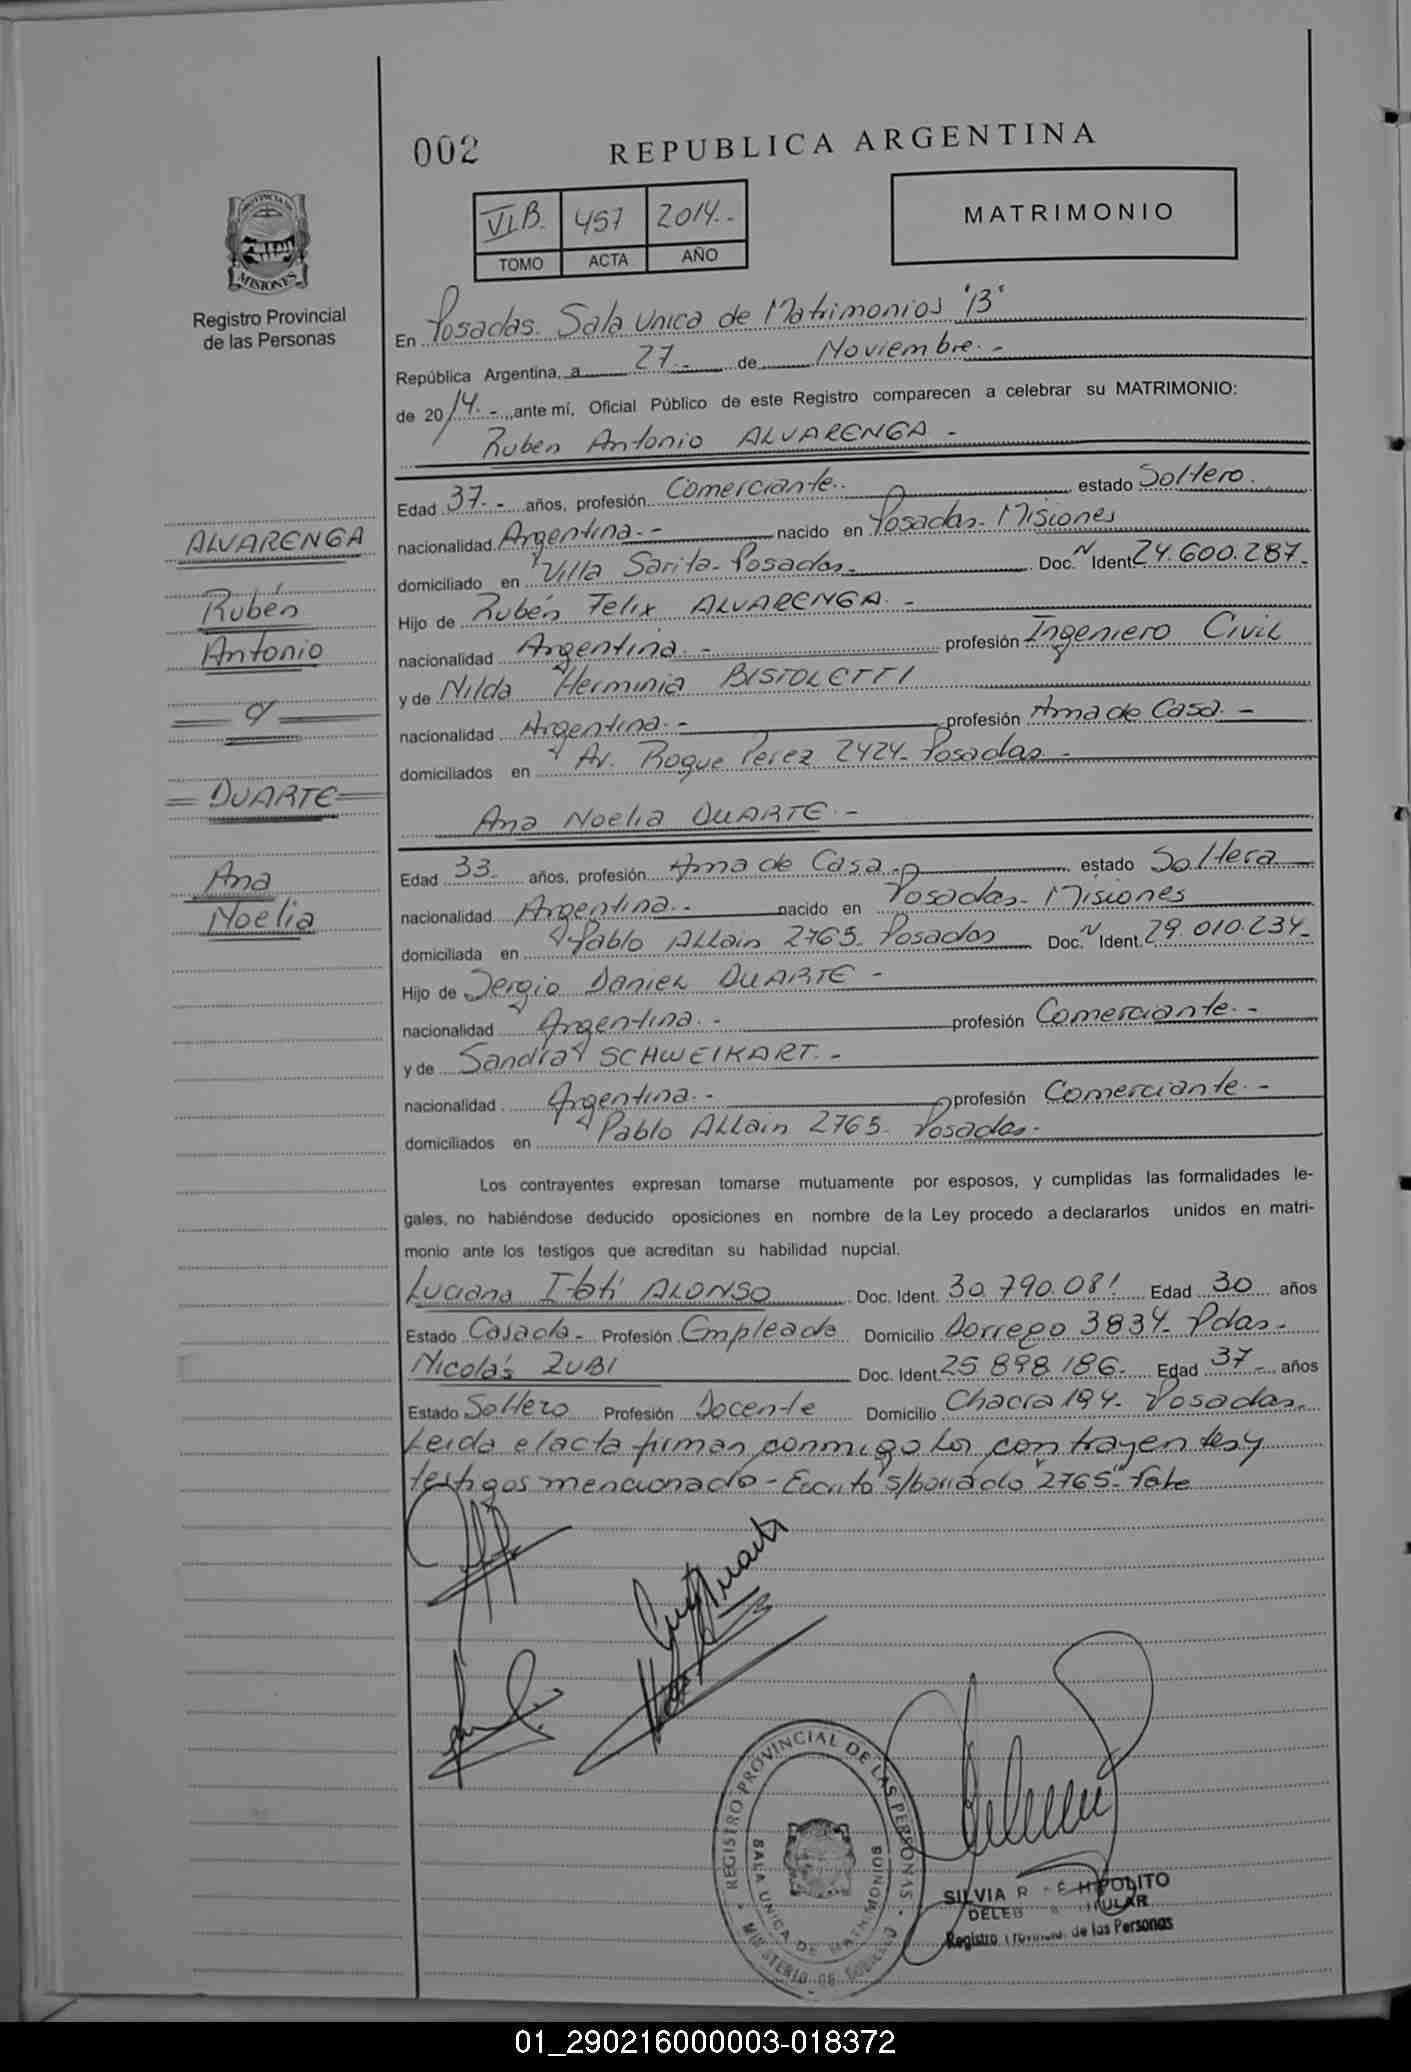 002
REPUBLICA ARGENTINA
VI.B. 457 2014.-
TOMO ACTA AÑO
MATRIMONIO
PROVINCIA DE
MISIONES
Registro Provincial
de las Personas
En Posadas. Sala Unica de Matrimonios "B"
República Argentina, a 27.- de Noviembre.-
de 2014.- ante mí, Oficial Público de este Registro comparecen a celebrar su MATRIMONIO:
Ruben Antonio ALVARENGA -
Edad 37.- años, profesión Comerciante.- estado Soltero.
nacionalidad Argentina.- nacido en Posadas- Misiones
domiciliado en Villa Sarita- Posadas- Doc. N Ident 24.600.287-
Hijo de Rubén Felix ALVARENGA.-
nacionalidad Argentina.- profesión Ingeniero Civil
y de Nilda Herminia BISTOLETTI
nacionalidad Argentina.- profesión Ama de Casa.-
domiciliados en Av. Roque Perez 2424- Posadas-
ALVARENGA
Rubén
Antonio
c/
DUARTE
Ana
Noelia
Ana Noelia DUARTE.-
Edad 33- años, profesión Ama de Casa.- estado Soltera
nacionalidad Argentina.- nacido en Posadas- Misiones
domiciliada en Pablo Allain 2765- Posadas Doc. N Ident. 29.010.234-
Hijo de Sergio Daniel DUARTE -
nacionalidad Argentina.- profesión Comerciante.-
y de Sandra SCHWEIKART.-
nacionalidad Argentina.- profesión Comerciante.-
domiciliados en Pablo Allain 2765- Posadas-
Los contrayentes expresan tomarse mutuamente por esposos, y cumplidas las formalidades le-
gales, no habiéndose deducido oposiciones en nombre de la Ley procedo a declararlos unidos en matri-
monio ante los testigos que acreditan su habilidad nupcial.
Luciana Itatí ALONSO Doc. Ident. 30.790.081 Edad 30 años
Estado Casada- Profesión Empleada Domicilio Dorrego 3834- Pdas-
Nicolás ZUBI Doc. Ident 25.898.186- Edad 37- años
Estado Soltero Profesión Docente Domicilio Chacra 194- Posadas-
Leida el acta firman conmigo los contrayentes y
testigos mencionado- Escrito s/borrado "2765" Vale
REGISTRO PROVINCIAL DE LAS PERSONAS
SALA UNICA DE MATRIMONIOS
MINISTERIO DE GOBIERNO
SILVIA HIPOLITO
TITULAR
Registro Provincial de las Personas
01_290216000003-018372